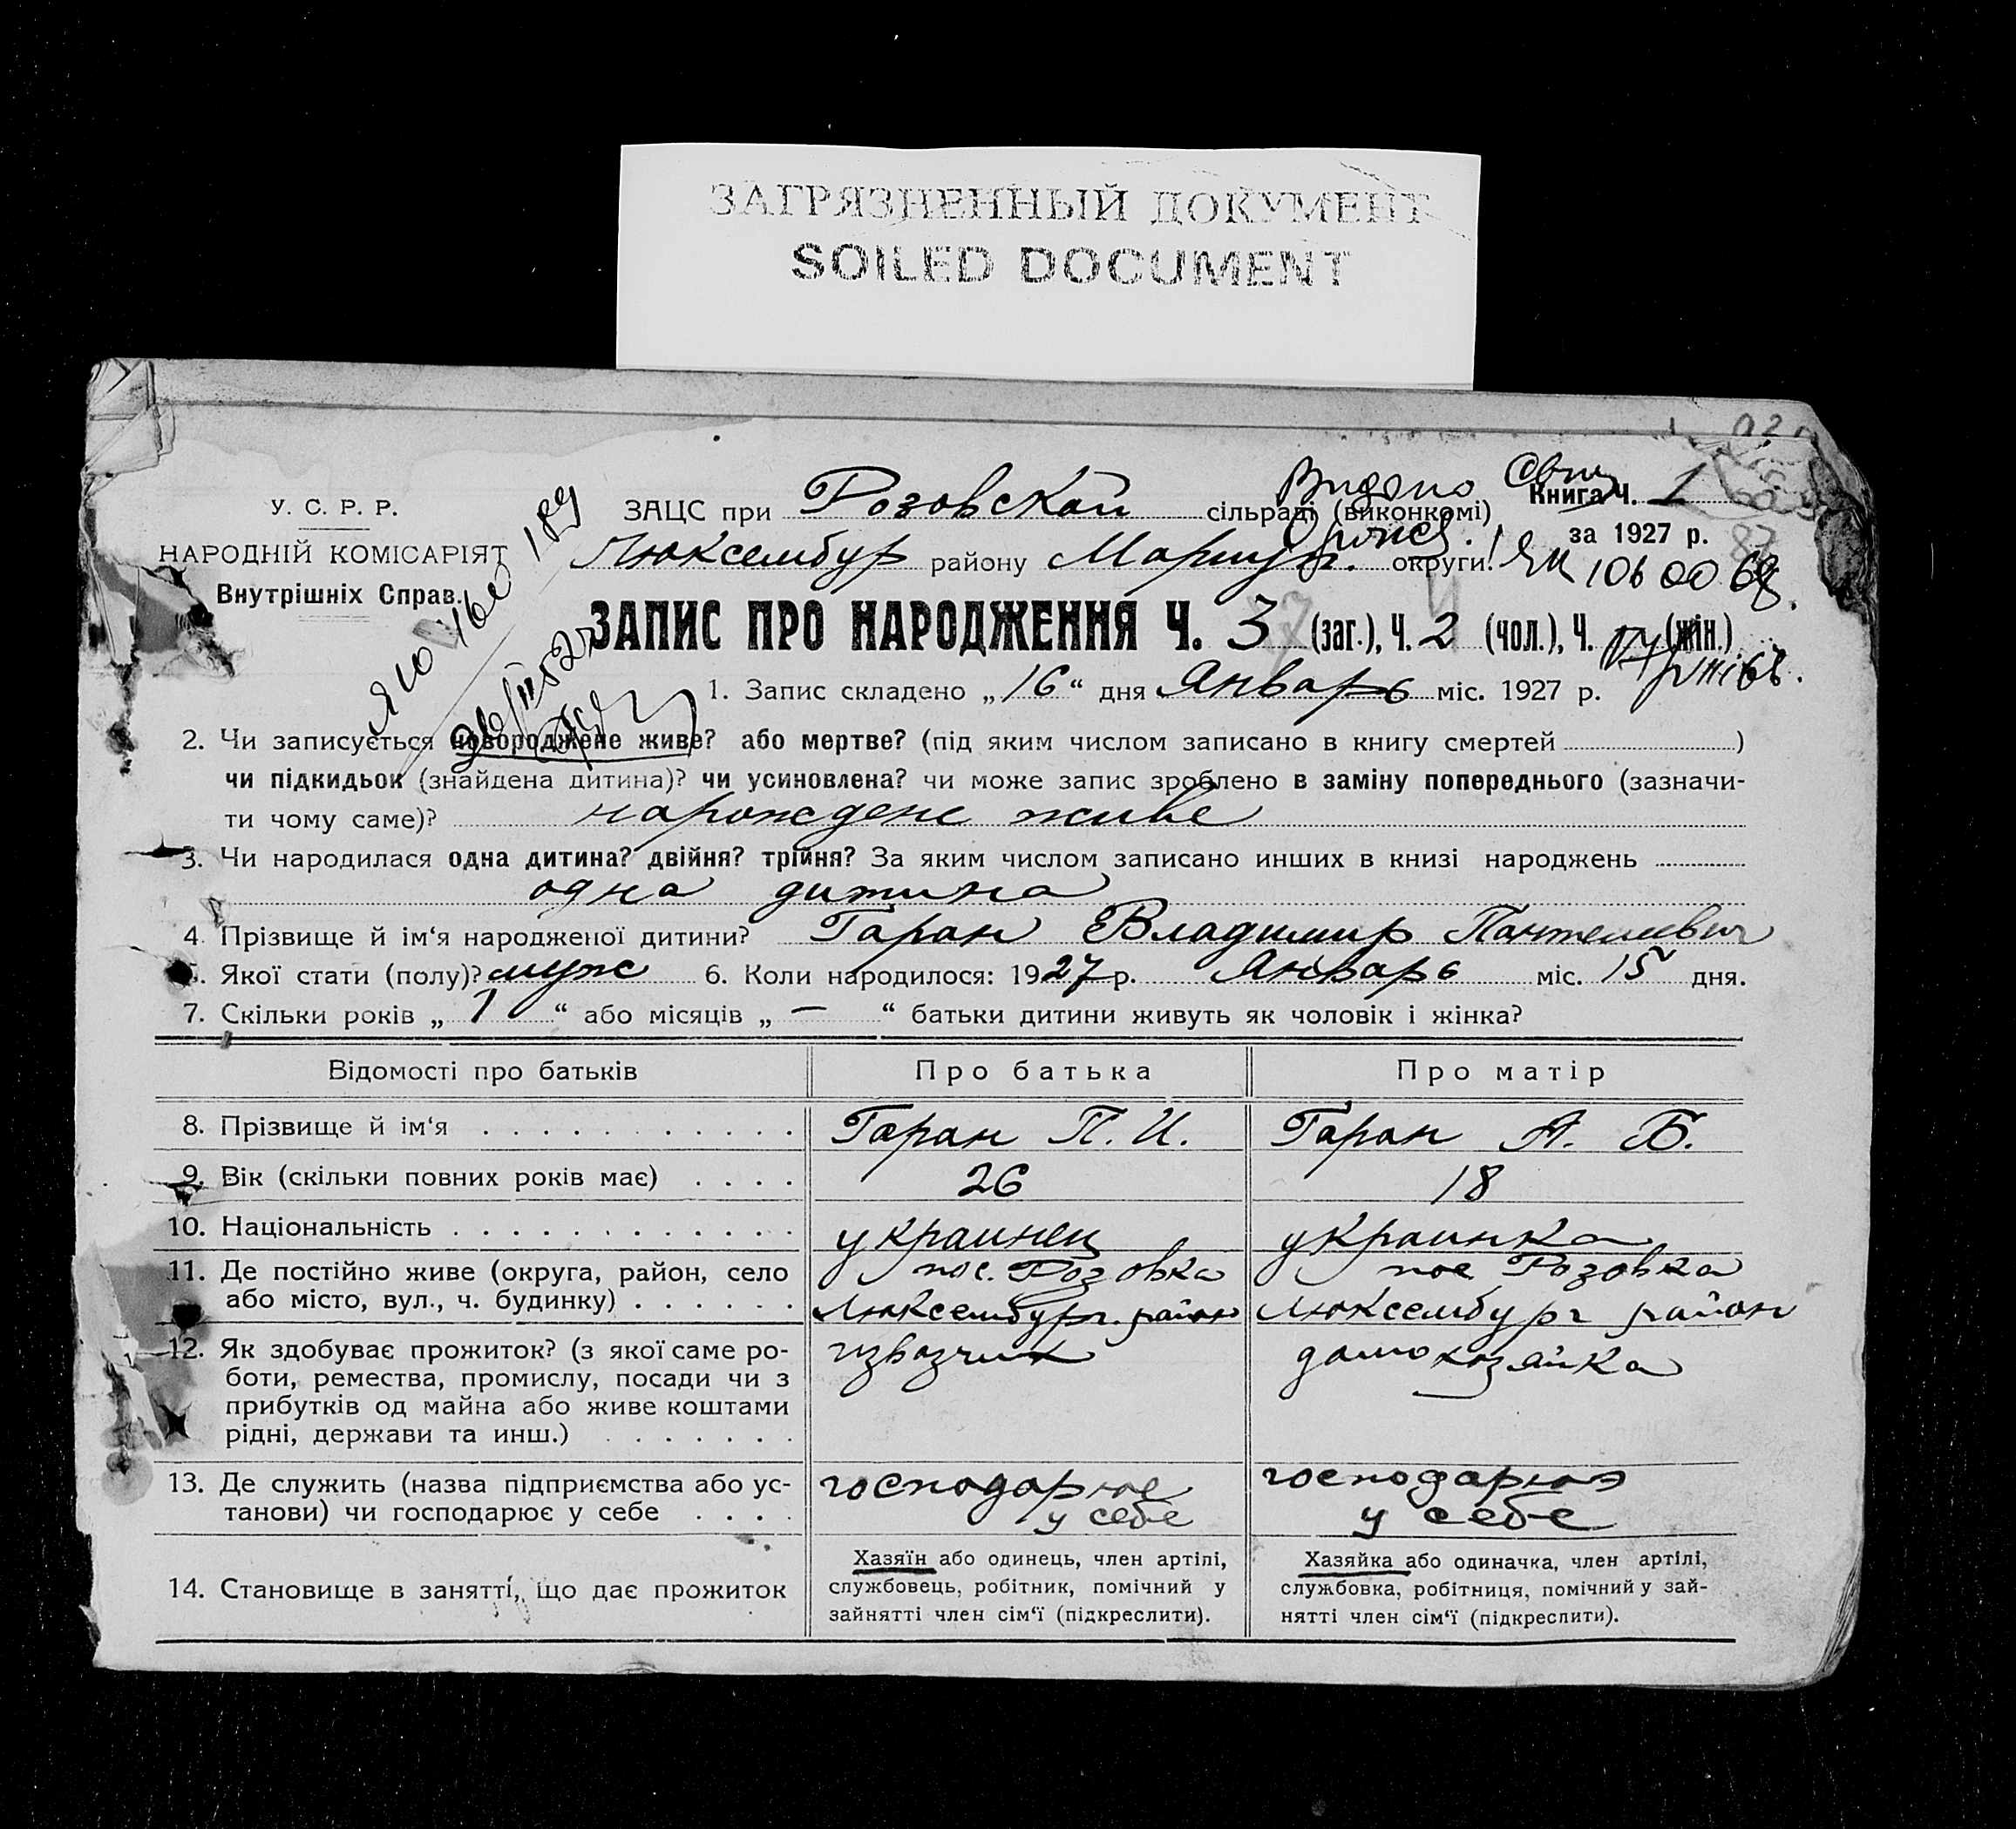 ЗАГРЯЗНЕННЫЙ ДОКУМЕНТ
SOILED DOCUMENT
У. С. Р. Р.
НАРОДНІЙ КОМІСАРІЯТ
Внутрішніх Справ.
Видано
ЗАЦС при Розовской сільраді (виконкомі) Книга Ч. 1
Люксембур району Мариуп. округи. за 1927 р.
ЗАПИС ПРО НАРОДЖЕННЯ Ч. 3 (заг.), Ч. 2 (чол.), Ч. (жін.)
1. Запис складено „16“ дня Январь міс. 1927 р.
2. Чи записується новороджене живе? або мертве? (під яким числом записано в книгу смертей )
чи підкидьок (знайдена дитина)? чи усиновлена? чи може запис зроблено в заміну попереднього (зазначи-
ти чому саме)? нарождене живе
3. Чи народилася одна дитина? двійня? трійня? За яким числом записано инших в книзі народжень
одна дитина
4. Прізвище й ім‘я народженої дитини? Гаран Владимир Пантелиевич
5. Якої стати (полу)? муж 6. Коли народилося: 1927 р. Январь міс. 15 дня.
7. Скільки років „ 1 “ або місяців „ — “ батьки дитини живуть як чоловік і жінка?
Відомості про батьків Про батька Про матір
8. Прізвище й ім‘я Гаран П. И. Гаран А. Б.
9. Вік (скільки повних років має) 26 18
10. Національність украинец украинка
11. Де постійно живе (округа, район, село пос. Розовка пос Розовка
або місто, вул., ч. будинку) Люксембург. район Люксембург район
12. Як здобуває прожиток? (з якої саме ро- извозчик домохозяйка
боти, ремества, промислу, посади чи з
прибутків од майна або живе коштами
рідні, держави та инш.)
13. Де служить (назва підприємства або ус- господарює господарюэ
танови) чи господарює у себе у себе у себе
14. Становище в занятті, що дає прожиток
Хазяїн або одинець, член артілі,
службовець, робітник, помічний у
зайнятті член сім‘ї (підкреслити).
Хазяйка або одиначка, член артілі,
службовка, робітниця, помічний у зай-
нятті член сім‘ї (підкреслити).